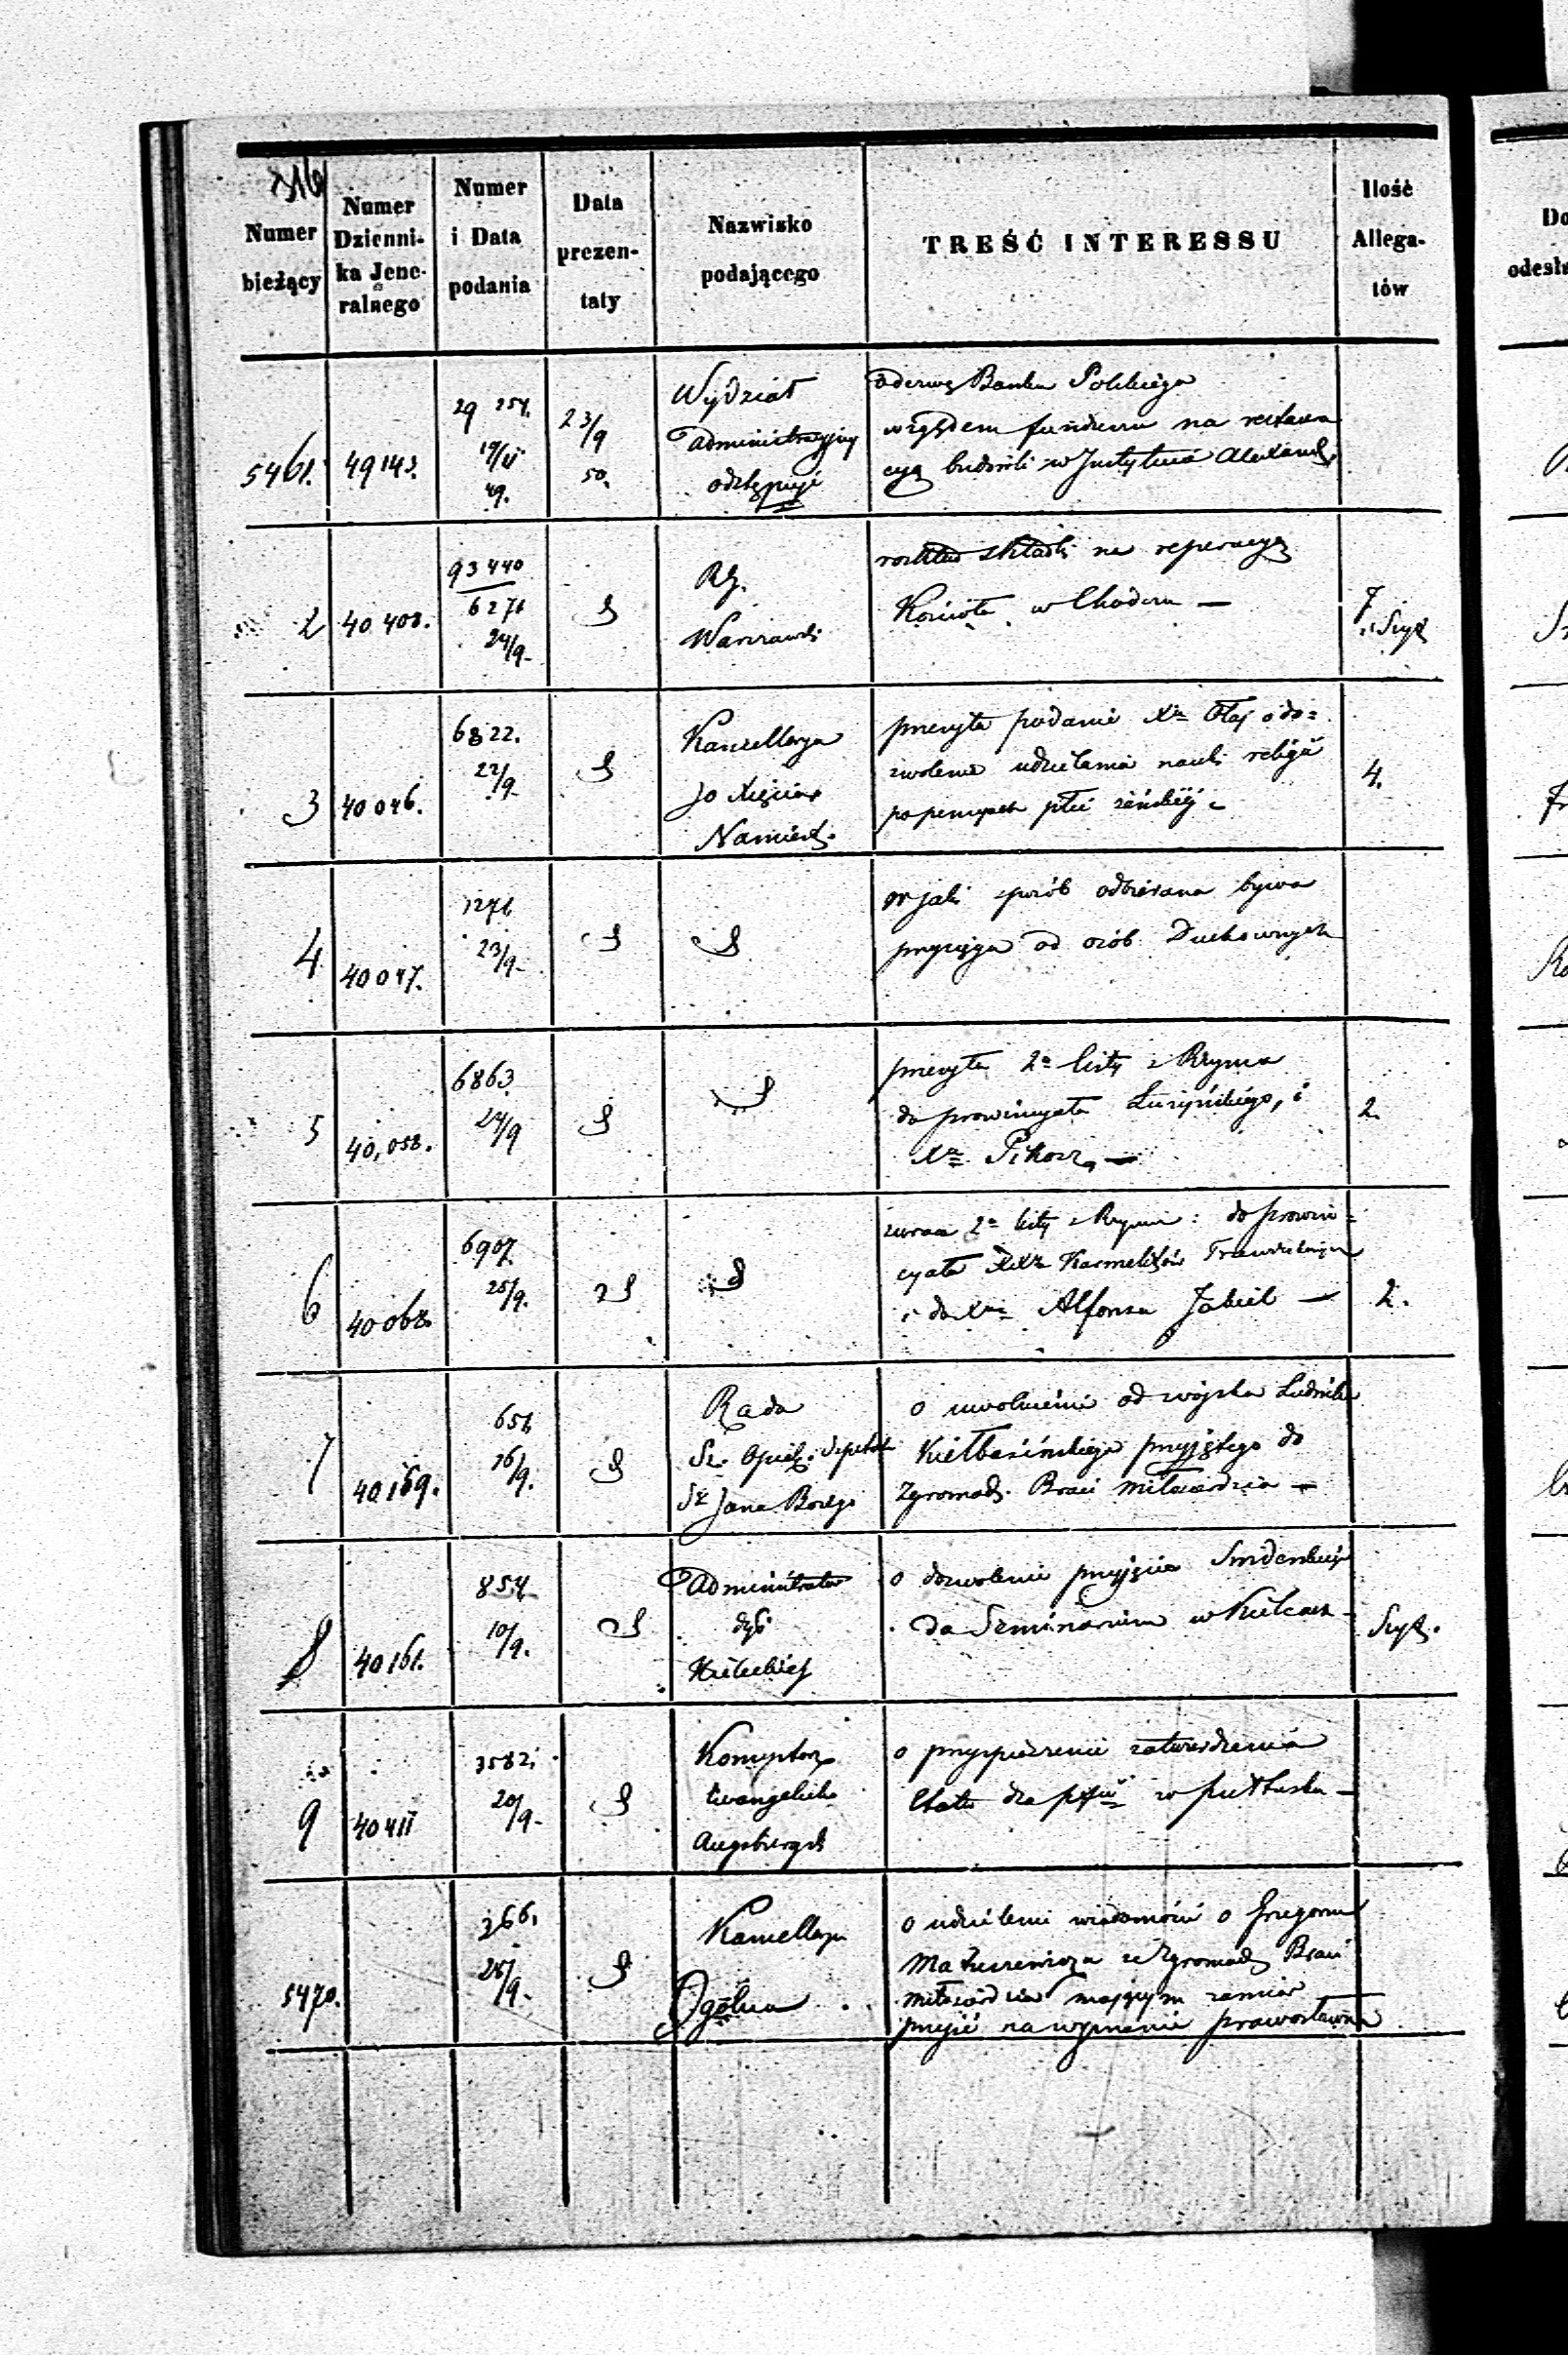 316
Numer bieżący
Numer Dzienni- ka Jene- ralnego
Numer i Data podania
Data prezen- taty
Nazwisko podającego
TREŚĆ INTERESSU
Ilość Allega- tów
5461.
49143.
29 254.
19/
49.
23/9
50.
Wydział
Administracyjny
odstępuje
odezwę Banku Polskiego
względem funduszu na restaura
cyą budowli w Instytucie Alexand.
2
40 408.
93 440
6271
24/9.
Rz.
Warszawski
rozkład składki na reperacyą
Kościoła w Chodczu —
7
Szyt
3
40 046.
6822.
22/9
Kancellarya
Jo Xięcia
Namiest.
przesyła podanie Xa o do=
zwolenie udzielania nauki religii
po pensyach płci żeńskiéj
4.
4
40 047.
1271
23/9
w jaki sposób odbierana bywa
przysięga od osób Duchownych
5
40,058.
6863
24/9
przesyła 2a listy z Rzymu
do prowincyała i
Xa
2.
6
40 068.
6907
25/9.
zwraca 2a listy z Rzymu: do prowin=
cyała XXzy Karmelitów Trzewiczkowych
i do Xa Alfonsa
2.
7
40 159.
651
16/9.
Rada
Sz. Opiek. Szpitala
Sgo Jana Bożego
o uwolnienie od wojska Ludwika
Kiełbasińskiego przyjętego do
Zgromadz. Braci miłosierdzia —
8
40 161.
854
10/9.
Administrator
dyé
Kieleckiéj
o dozwolenie przyjęcia
do Seminarium w Kielcach —
Szyt.
9
40 411
3582.
20/9.
Konsystorz
Ewangelicko
Augsburgsk
o przyspieszenie zatwierdzenia
Etatu dla pfii w Pułtusku —
5470.
366,
25/9.
Kancellarya
Ogólna
o udzielenie wiadomości o Grzegorzu
ze Zgromadz Braci
miłosierdzia mającym zamiar
przejść na wyznanie prawosławne